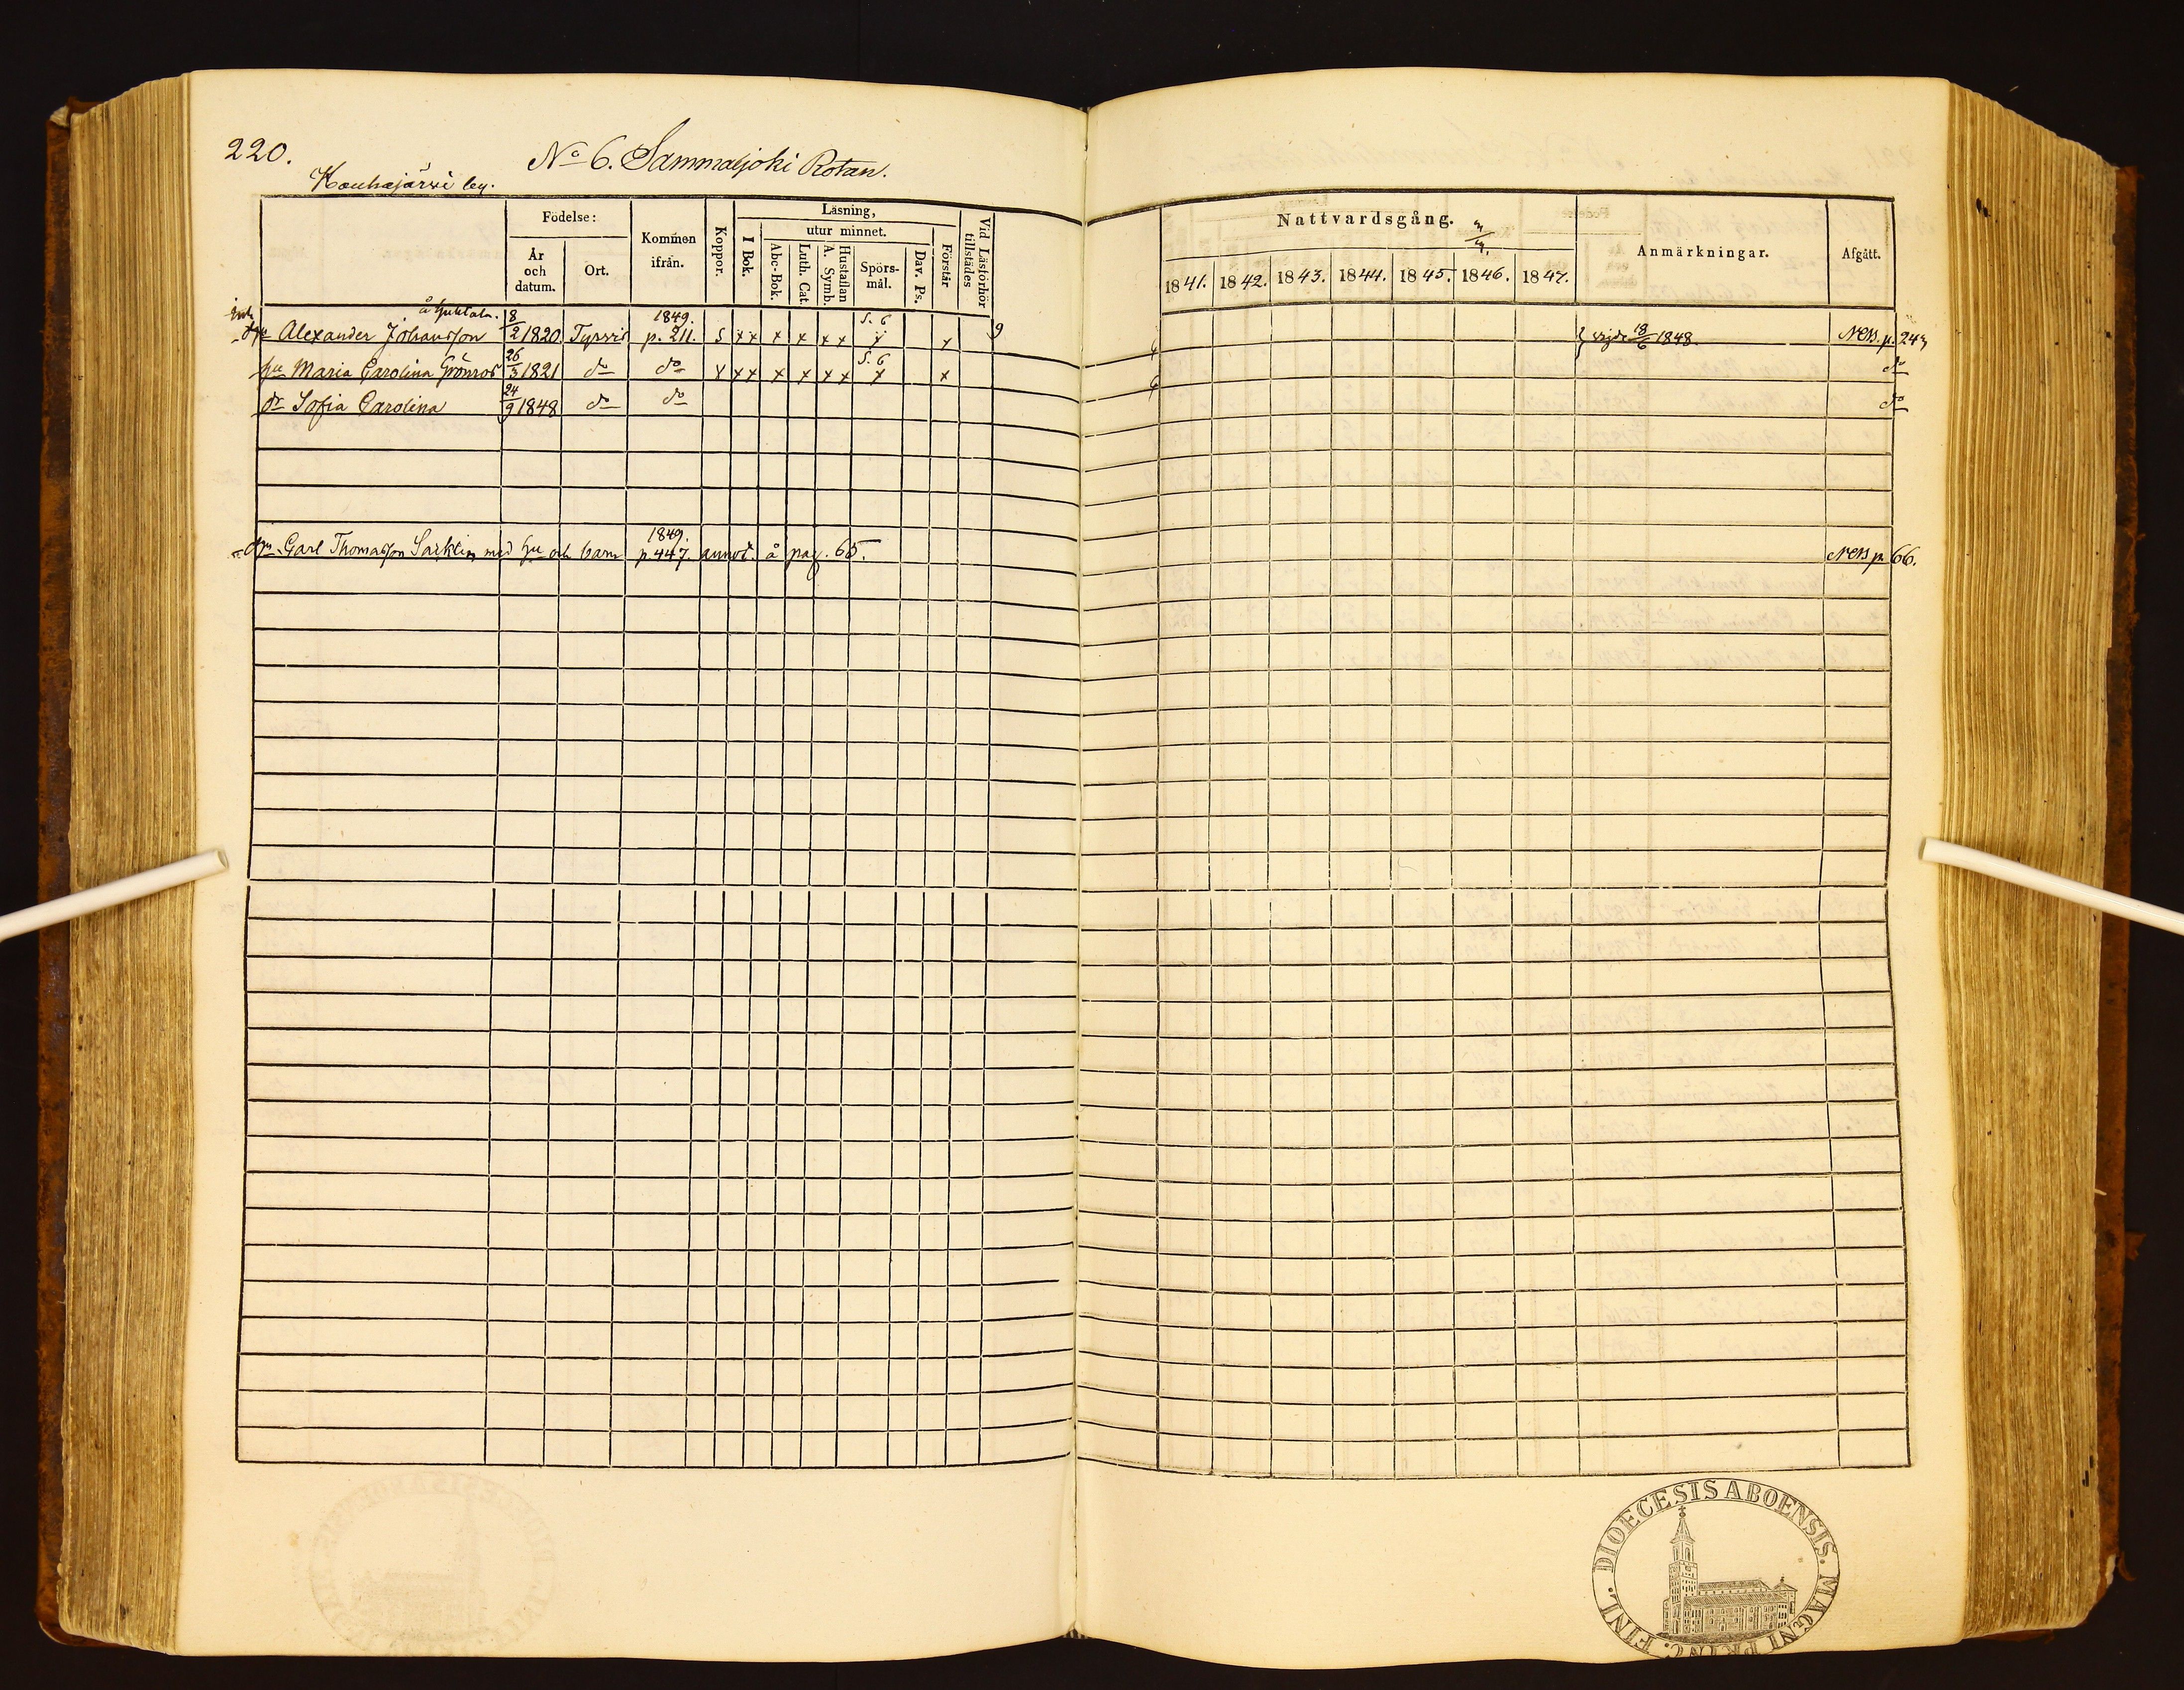 220.
No 6. Sammaljoki Rotan.
Kouhajärvi by.
Födelse:
År och datum.
Ort.
Kommen ifrån.
Koppor.
Läsning,
I Bok.
utur minnet.
Abc-Bok.
Luth. Cat.
Hustaflan A. Symb.
Spörsmål.
Dav. Ps.
Förstår
Vid Läsförhör tillstädes
Nattvardsgång.
1841. 1842. 1843. 1844. 1845. 1846. 1847.
Anmärkningar.
Afgått.
1849. S. 6
Alexander Johansson 8/2 1820 Tyrvis p. 211. S x x x x x x x x 9 vigde 18/6 1848 NCB. p. 243
S. 6
hu Maria Carolina Grönroos 26/3 1821 do do x x x x x x x x x do
dr Sofia Carolina 24/9 1848 do do do
1849.
Carl Thomasson Sarklin med hu och barn p. 447. annot. å pag. 65. NCB p. 66.
DIOECESIS ABOENSIS. MAGNI PRINC. FINL.